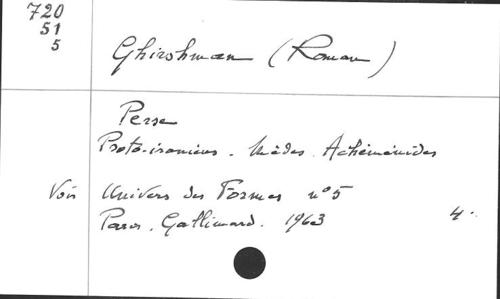 720
51
5
Ghirshman (Roman)
Perse
Proto-iraniens. Mèdes. Achéménides
Voir Univers des Formes n°5
Paris. Gallimard. 1963 4.